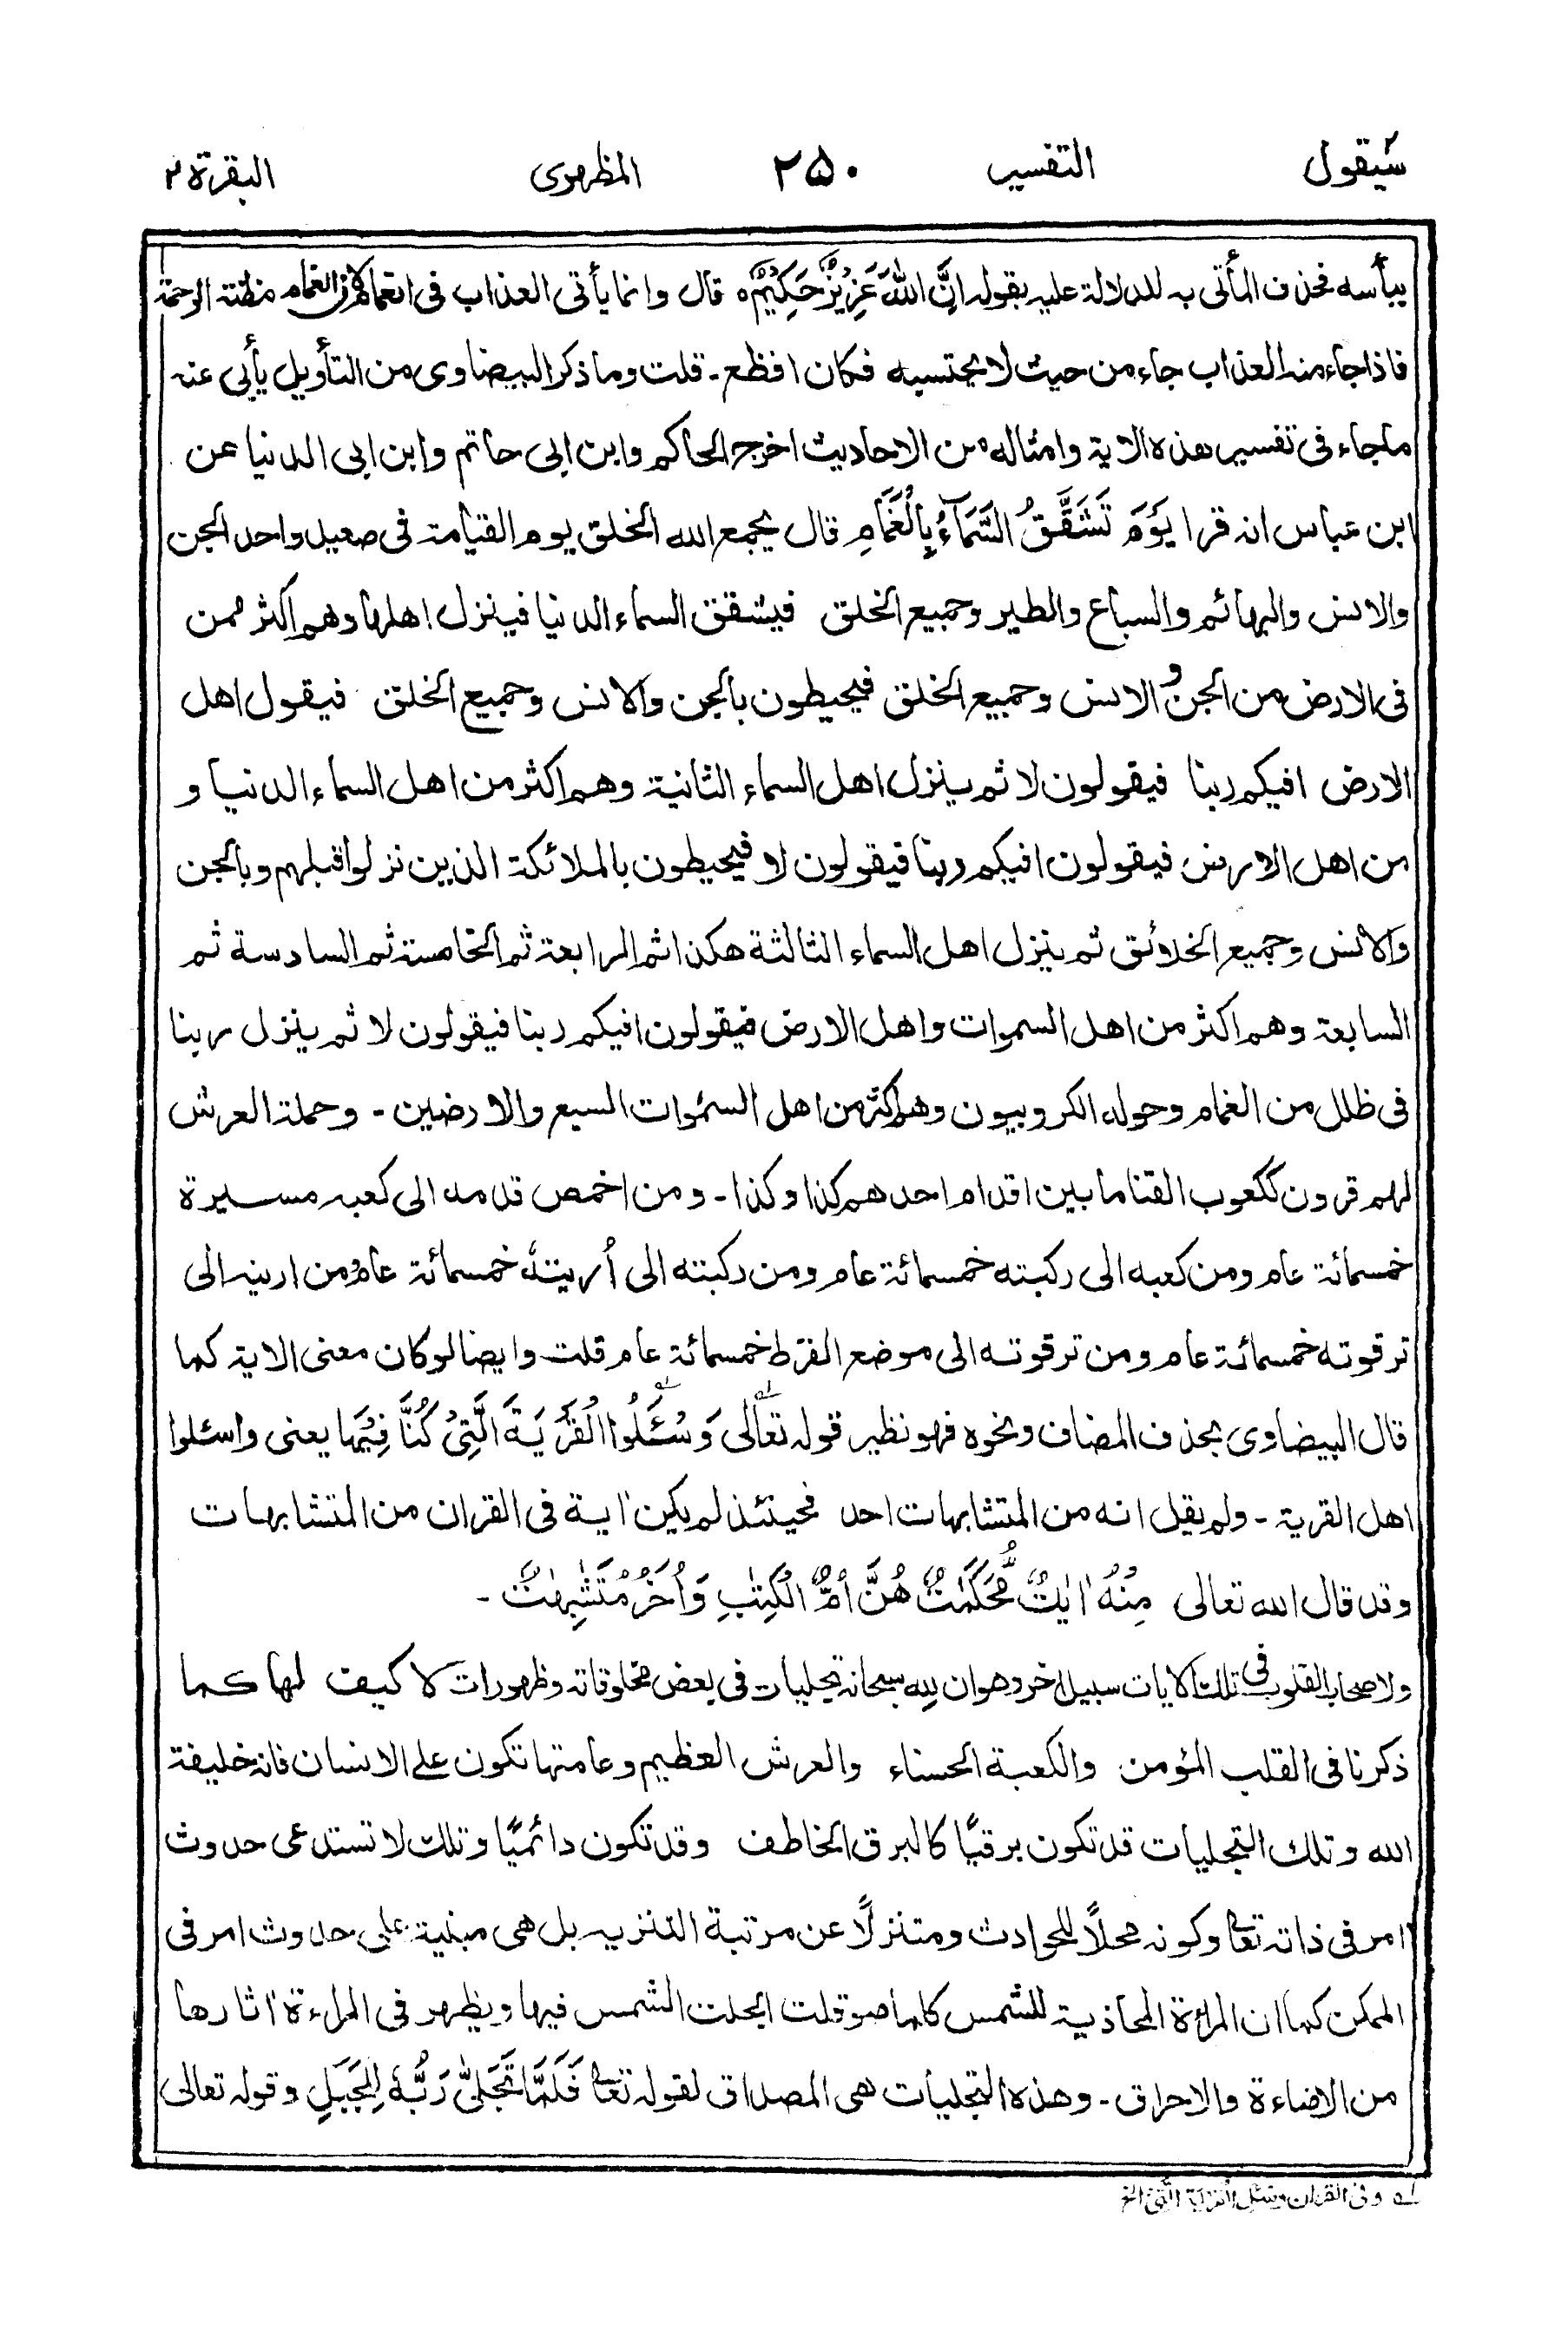 سَيَقول ٢ التفسير ٢٥٠ المظهرى البقرة ٢
ببأسه فحذف المأتى به للدلالة عليه بقوله اِنَّ اللهَ عَزِيْزٌ حَكِيْمٌ ٥ قال وانما يأتى العذاب فى الغمام لان الغمام مظنة الرحمة
فاذا جاء منه العذاب جاء من حيث لا يحتسبه فكان افظع - قلت وما ذكر البيضاوى من التأويل يأبى عنه
ما جاء فى تفسير هذه الاية وامثاله من الاحاديث اخرج الحاكم وابن ابى حاتم وابن ابى الدنيا عن
ابن عباس انه قرا يَوْمَ تَشَقَّقُ السَّمَآءُ بِالْغَمَامِ قال يجمع الله الخلق يوم القيامة فى صعيد واحد الجن
والانس والبهائم والسباع والطير وجميع الخلق فيشقق السماء الدنيا فينزل اهلها وهم اكثر ممن
فى الارض من الجن والانس وجميع الخلق فيحيطون بالجن والانس وجميع الخلق فيقول اهل
الارض افيكم ربنا فيقولون لا ثم ينزل اهل السماء الثانية وهم اكثر من اهل السماء الدنيا و
من اهل الارض فيقولون افيكم ربنا فيقولون لا فيحيطون بالملائكة الذين نزلوا قبلهم وبالجن
والانس وجميع الخلائق ثم ينزل اهل السماء الثالثة هكذا ثم الرابعة ثم الخامسة ثم السادسة ثم
السابعة وهم اكثر من اهل السموات واهل الارض فيقولون افيكم ربنا فيقولون لا ثم ينزل ربنا
فى ظلل من الغمام وحوله الكروبيون وهم اكثر من اهل السموات السبع والارضين - وحملة العرش
لهم قرون ككعوب القنا ما بين اقدام احدهم كذا وكذا - ومن اخمص قدمه الى كعبه مسيرة
خمسمائة عام ومن كعبه الى ركبته خمسمائة عام ومن ركبته الى أربيته خمسمائة عام ومن اربيته الى
ترقوته خمسمائة عام ومن ترقوته الى موضع القرط خمسمائة عام قلت وايضا لو كان معنى الاية كما
قال البيضاوى بحذف المضاف ونحوه فهو نظير قوله تعالى وَسْئَلُوا الْقَرْيَةَ الَّتِىْ كُنَّا فِيْهَا يعنى واسئلوا
اهل القرية - ولم يقل انه من المتشابهات احد فحينئذ لم يكن اية فى القران من المتشابهات
وقد قال الله تعالى مِنْهُ اٰيٰتٌ مُّحْكَمٰتٌ هُنَّ اُمُّ الْكِتٰبِ وَاُخَرُ مُتَشٰبِهٰتٌ -
ولاصحاب القلوب فى تلك الايات سبيل اخر وهو ان لله سبحانه تجليات فى بعض مخلوقاته وظهورات لا كيف لها كما
ذكرنا فى القلب المؤمن والكعبة الحسناء والعرش العظيم وعامتها تكون على الانسان فانه خليفة
الله وتلك التجليات قد تكون برقيًا كالبرق الخاطف وقد تكون دائميًا وتلك لا تستدعى حدوث
امر فى ذاته تعالى وكونه محلًا للحوادث ومتنزلًا عن مرتبة التنزيه بل هى مبنية على حدوث امر فى
الممكن كما ان المراة المحاذية للشمس كلما صوقلت انجلت الشمس فيها ويظهر فى المراءة اثارها
من الاضاءة والاحراق - وهذه التجليات هى المصداق لقوله تعالى فَلَمَّا تَجَلّٰى رَبُّهٗ لِلْجَبَلِ وقوله تعالى
لـه وفى القران وسئل القرية التى الخ